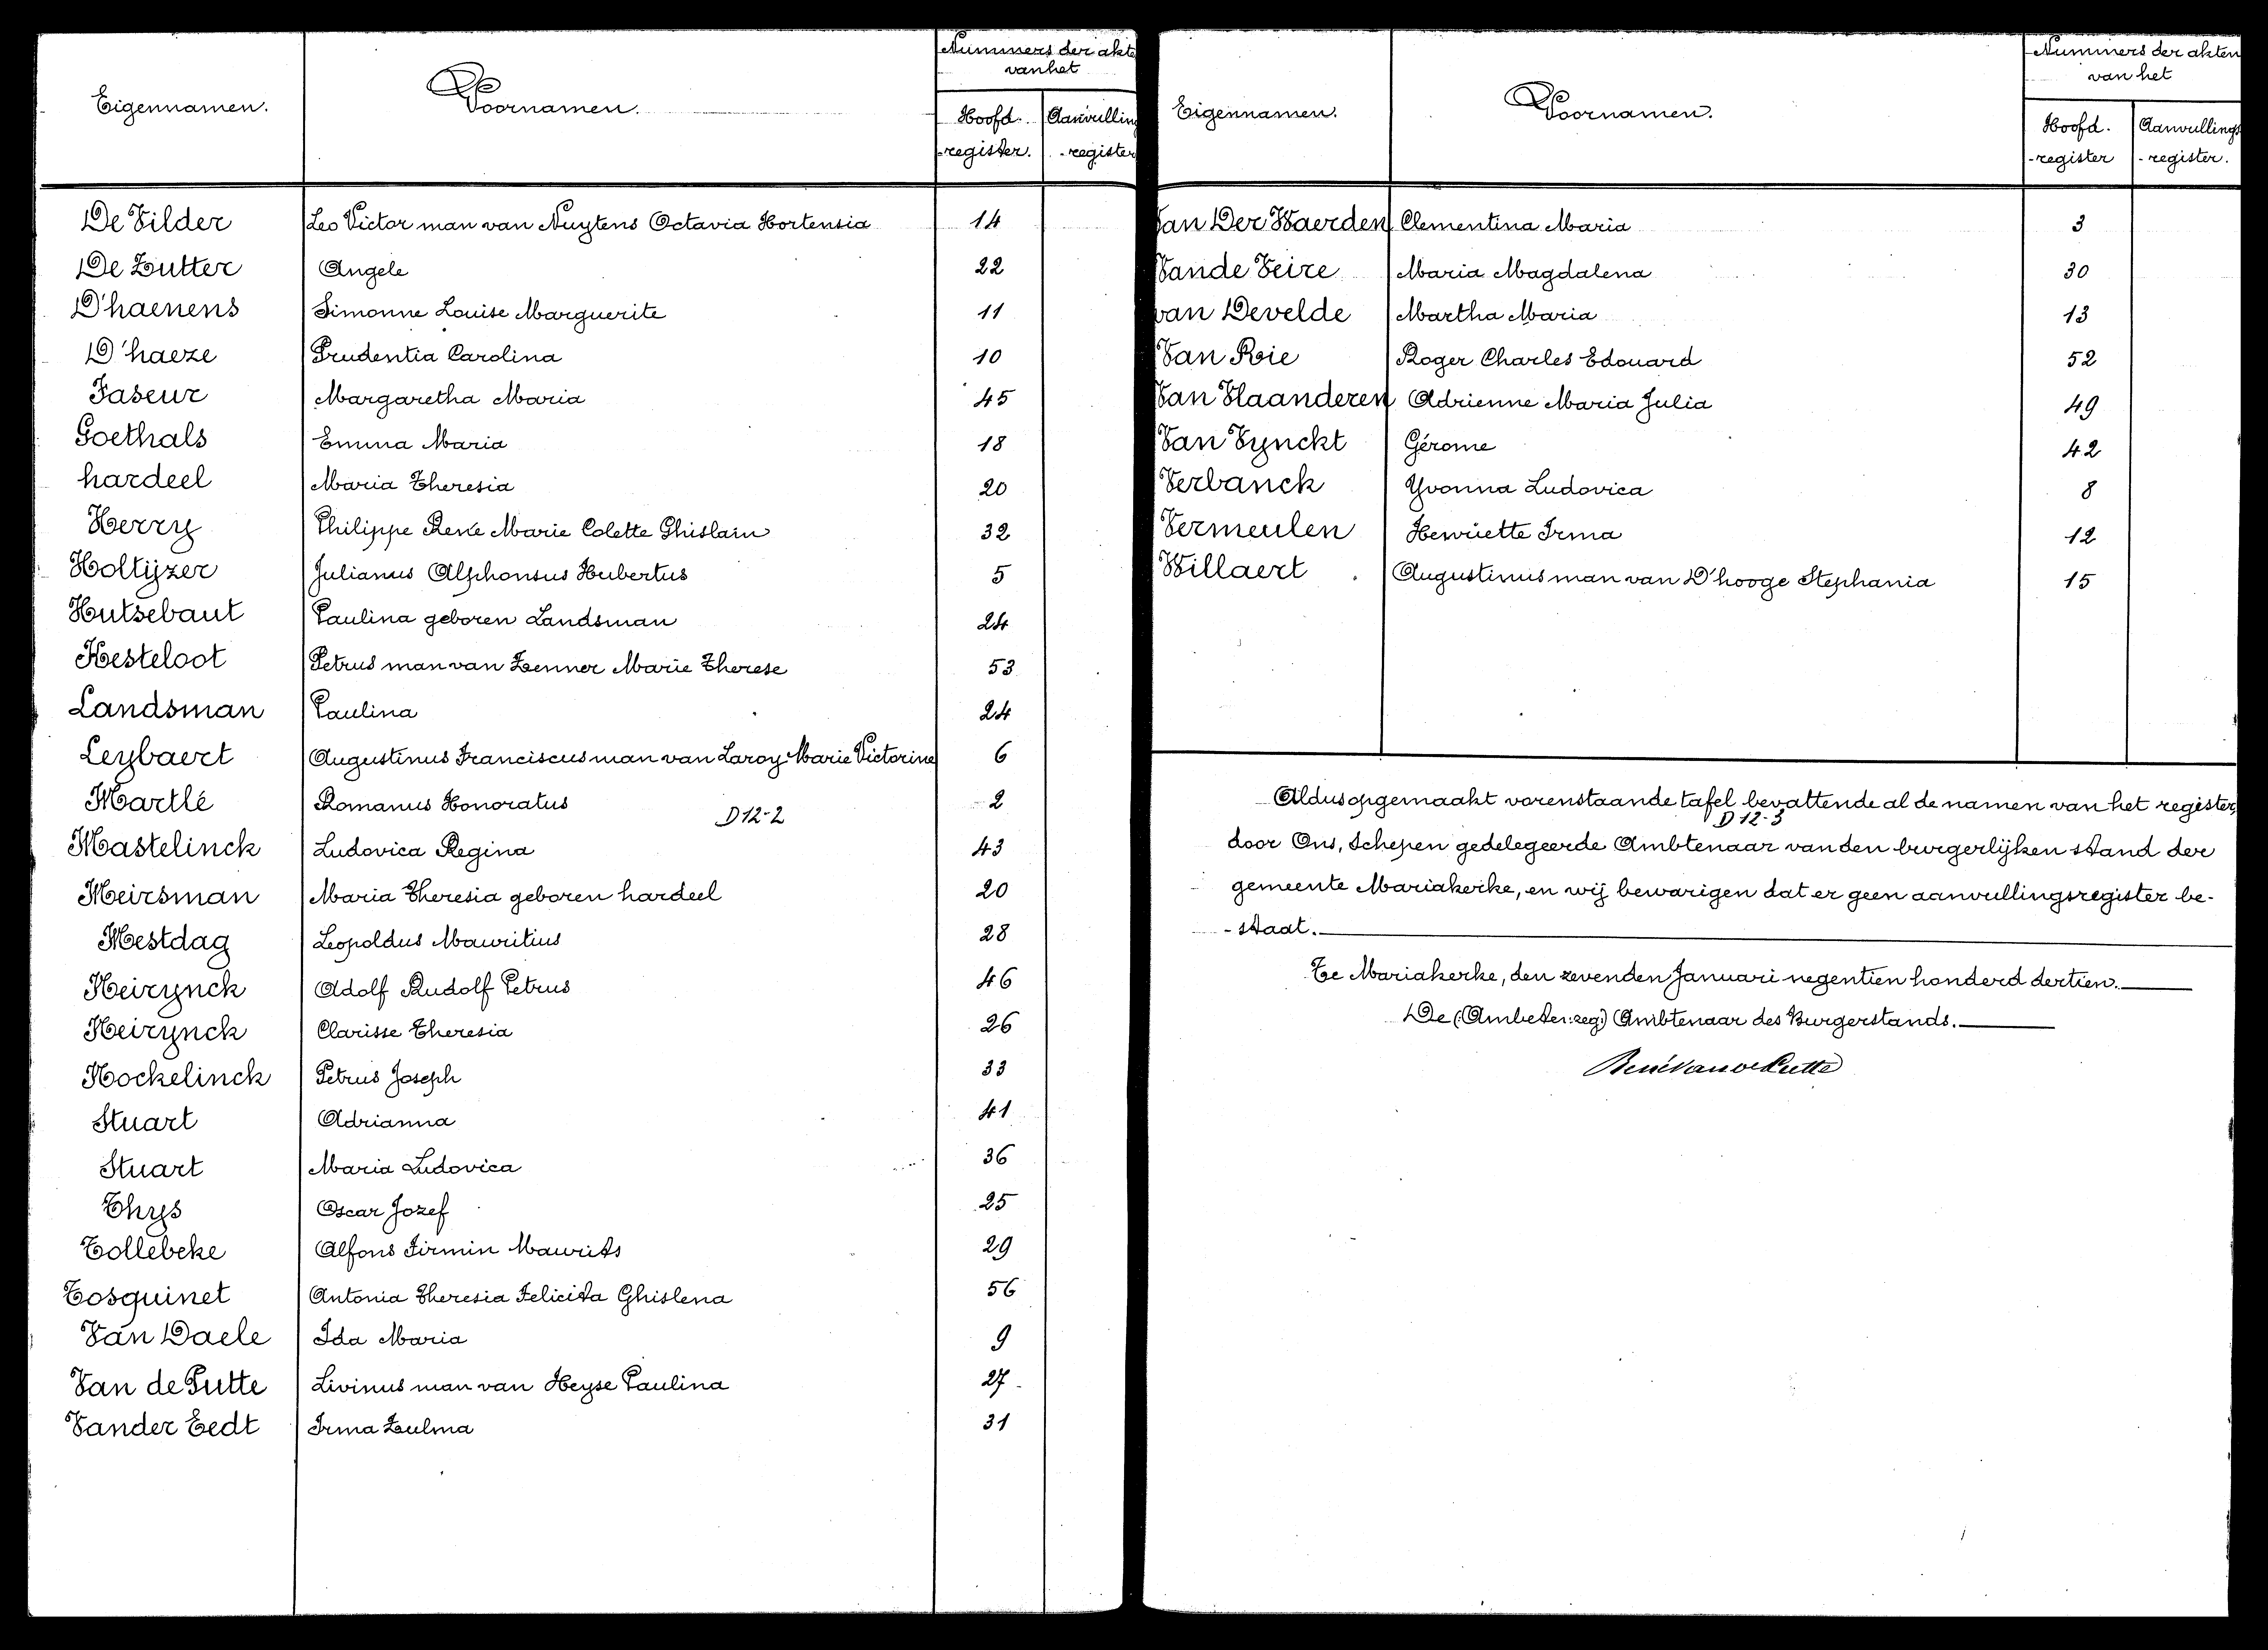 Eigennamen. Voornamen. Nummers der akte
van het
Hoofd- Aanvulling
-register. -register
De Vilder Leo Victor man van Nuytens Octavia Hortensia 14
De Zutter Angele 22
D'haenens Simonne Louise Marguerite 11
D'haeze Prudentia Carolina 10
Faseur Margaretha Maria 45
Goethals Emma Maria 18
hardeel Maria Theresia 20
Herry Philippe René Marie Colette Ghislain 32
Holtijzer Julianus Alphonsus Hubertus 5
Hutsebaut Paulina geboren Landsman 24
Kesteloot Petrus man van Zenner Marie Therese 53
Landsman Paulina 24
Leybaert Augustinus Franciscus man van Laroy Marie Victorine 6
Martlé Romanus Honoratus 2
D12-2
Mastelinck Ludovica Regina 43
Meirsman Maria Theresia geboren hardeel 20
Mestdag Leopoldus Mauritius 28
Neirynck Adolf Rudolf Petrus 46
Neirynck Clarisse Theresia 26
Nockelinck Petrus Joseph 33
Stuart Adrianna 41
Stuart Maria Ludovica 36
Thys Oscar Jozef 25
Tollebeke Alfons Firmin Maurits 29
Tosquinet Antonia Theresia Felicita Ghislena 56
Van Daele Ida Maria 9
Van de Putte Livinus man van Heyse Paulina 27
Vander Eedt Irma Zulma 31
Eigennamen. Voornamen. Nummers der akten
van het
Hoofd- Aanvullings
-register -register.
Van Der Waerden Clementina Maria 3
Vande Veire Maria Magdalena 30
van Develde Martha Maria 13
Van Roie Roger Charles Edouard 52
Van Vlaanderen Adrienne Maria Julia 49
Van Vynckt Gérome 42
Verbanck Yvonna Ludovica 8
Vermeulen Henriette Irma 12
Willaert Augustinus man van D'hooge Stephania 15
Aldus opgemaakt vorenstaande tafel bevattende al de namen van het register,
D12-3
door Ons, Schepen gedelegeerde Ambtenaar van den burgerlijken stand der
gemeente Mariakerke, en wij bewarigen dat er geen aanvullingsregister be-
-staat.
Te Mariakerke, den zevenden Januari negentien honderd dertien.
De (Ambeten:zeg:) Ambtenaar des Burgerstands.
René Van de Putte